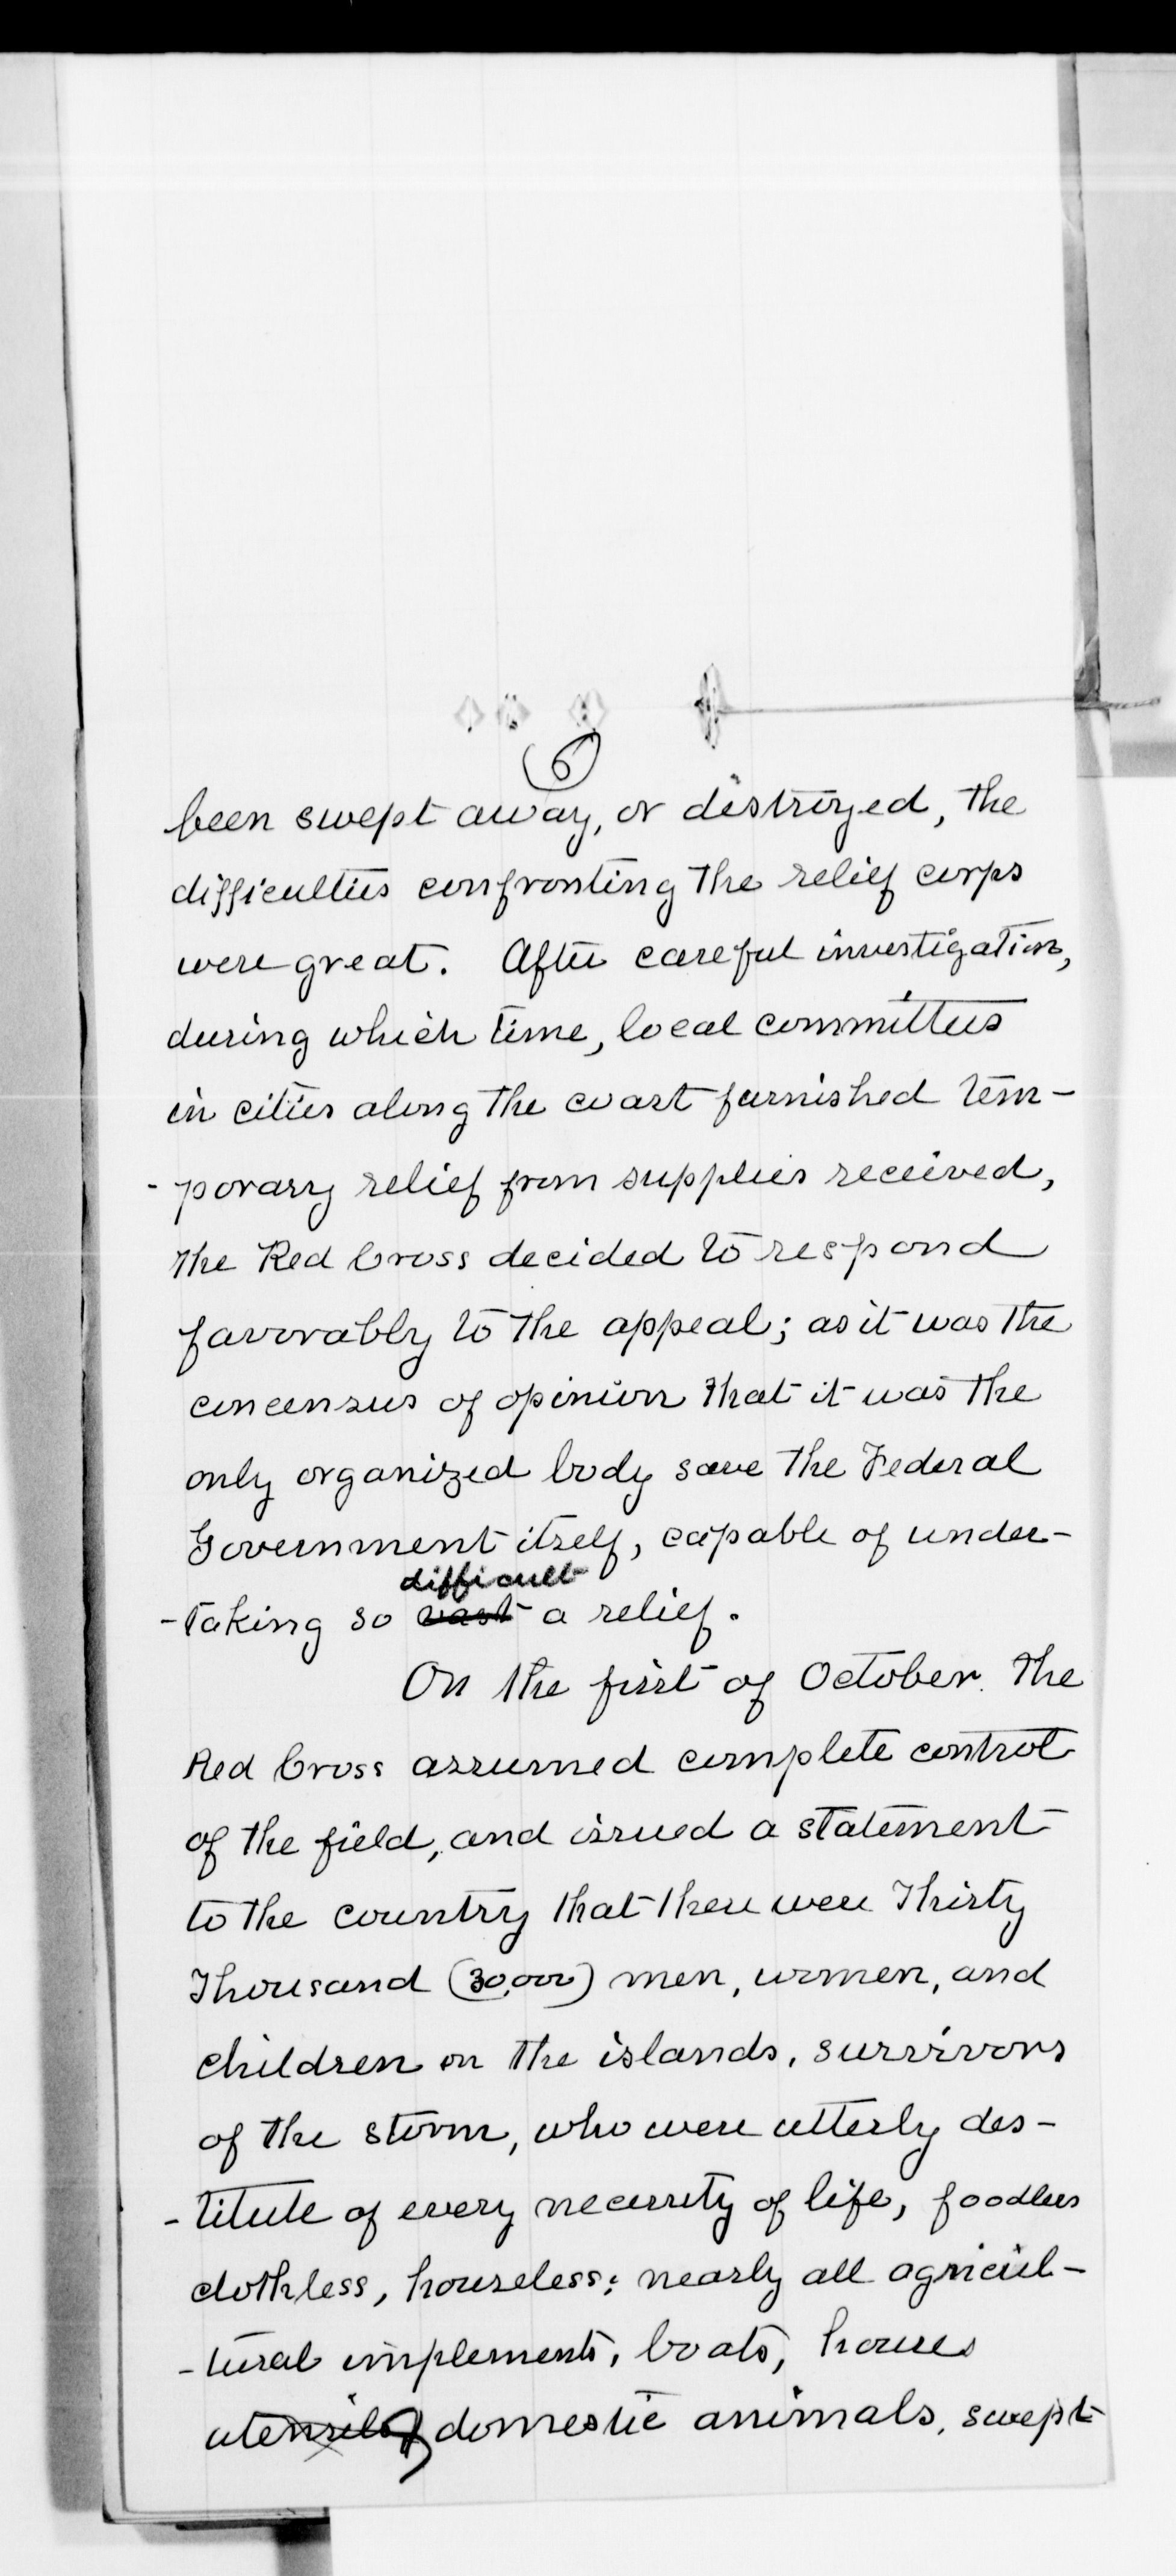 6
been swept away, or distroyed, the
difficulties confronting the relief corps
were great. After careful investigation,
during which time, local committees
in cities along the coast furnished tem-
-porary relief from supplies received,
the Red Cross decided to respond
favorably to the appeal; as it was the
concensus of opinion that it was the
only organized body save the Federal
Government itself, capable of under-
difficult
-taking so vast a relief.
On the first of October. the
Red Cross assumed complete control
of the field, and issued a statement
to the country that there were Thirty
Thousand (30,000) men, women, and
children on the islands, survivors
of the storm, who were utterly des-
-titute of every necessity of life, foodless
clothless, houseless; nearly all agricul-
-tural implements, boats, houses
utensils, domestic animals, swept